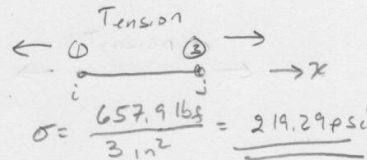 Tension
① ③
i j → x
σ = 657.9 lbf / 3 in² = 219.29 psi